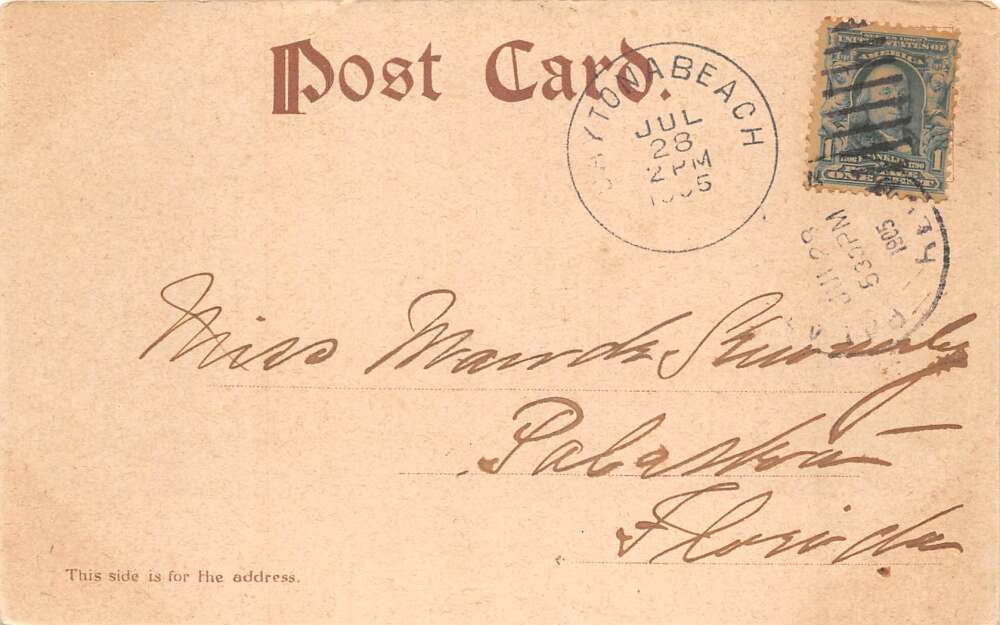 Post Card.
DAYTONA BEACH
JUL
28
2 PM
1905
UNITED STATES OF
AMERICA
1 FRANKLIN 1790 1
ONE
1905
530 PM
Miss Maude
Palatka
Florida
This side is for the address.